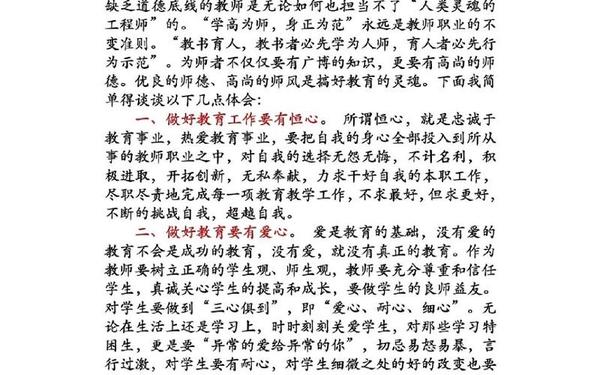 缺乏道德底线的教师是无论如何也担当不了“人类灵魂的
工程师”的。“学高为师，身正为范”永远是教师职业的不
变准则。“教书育人，教书者必先学为人师，育人者必先行
为示范”。为师者不仅仅要有广博的知识，更要有高尚的师
德。优良的师德、高尚的师风是搞好教育的灵魂。下面我简
单得谈谈以下几点体会：
一、做好教育工作要有恒心。 所谓恒心，就是忠诚于
教育事业，热爱教育事业，要把自我的身心全部投入到所从
事的教师职业之中，对自我的选择无怨无悔，不计名利，积
极进取，开拓创新，无私奉献，力求干好自我的本职工作，
尽职尽责地完成每一项教育教学工作，不求最好，但求更好，
不断的挑战自我，超越自我。
二、做好教育要有爱心。 爱是教育的基础，没有爱的
教育不会是成功的教育，没有爱，就没有真正的教育。作为
教师要树立正确的学生观、师生观，教师要充分尊重和信任
学生，真诚关心学生的提高和成长，要做学生的良师益友。
对学生要做到“三心俱到”，即“爱心、耐心、细心”。无
论在生活上还是学习上，时时刻刻关爱学生，对那些学习特
困生，更是要“异常的爱给异常的你”，切忌易怒易暴，言
行过激，对学生要有耐心，对学生细微之处的好的改变也要